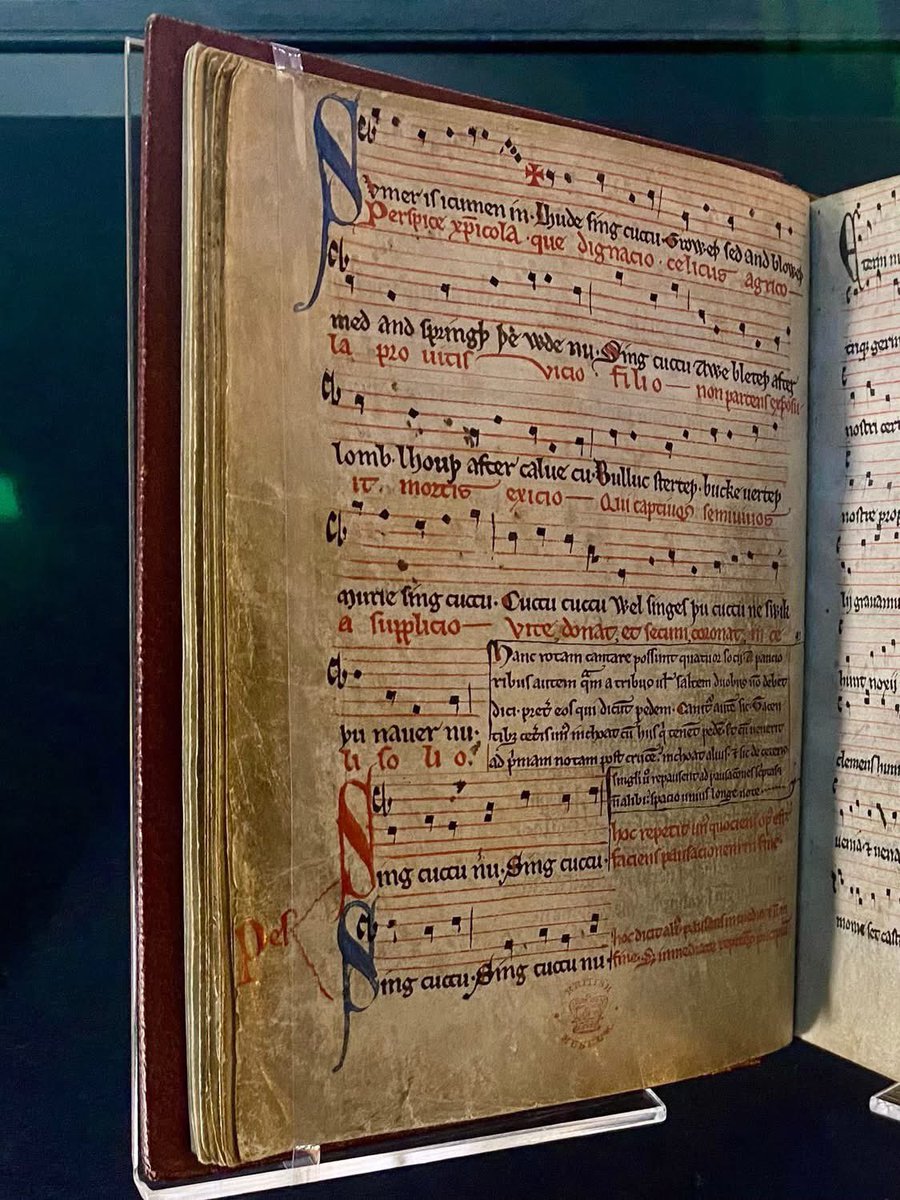 Sumer is icumen in · Lhude sing cuccu · Groweþ sed and bloweþ
Perspice xp̄icola · que dignacio · celicus agrico
med and springþ þe wde nu · Sing cuccu Awe bleteþ after
la pro uitis vicio · filio non parcens exposu
lomb · lhouþ after calue cu · Bulluc sterteþ · bucke uerteþ
it mortis exicio Qui captiuos semiuiuos
murie sing cuccu · Cuccu cuccu Wel singes þu cuccu ne swik
a supplicio Vite donat et secum coronat in ce
þu nauer nu ·
li so li o ·
Hanc rotam cantare possunt quatuor socii A paucio
ribus autem qͣm a tribus ul̛ saltem duobus nō debet
dici · pret̛ eos qui dicūt pedem · Canit᷑ autē sic · Tacen
tibꝫ cet̛is un᷒ inchoat cū hiis q̛ tenēt pedē et cū uenerit
ad p̛mam notam post crucē · inchoat alius · & sic de ceteris
singli ư repausent ad pausacōnes scriptas
nō alibi · spacio unius longe note
Sing cuccu nu · Sing cuccu ·
hoc repetit un᷒ quociens op᷒ est
faciens pausacionem in fine ·
Pes
Sing cuccu · Sing cuccu nu ·
hoc dicit ali᷒ pausans in medio & nō in
fine · S̛ immediate repetens principiū
BRITISH
MUSEUM
tern
nostri cert
nostre prop
clemens hum